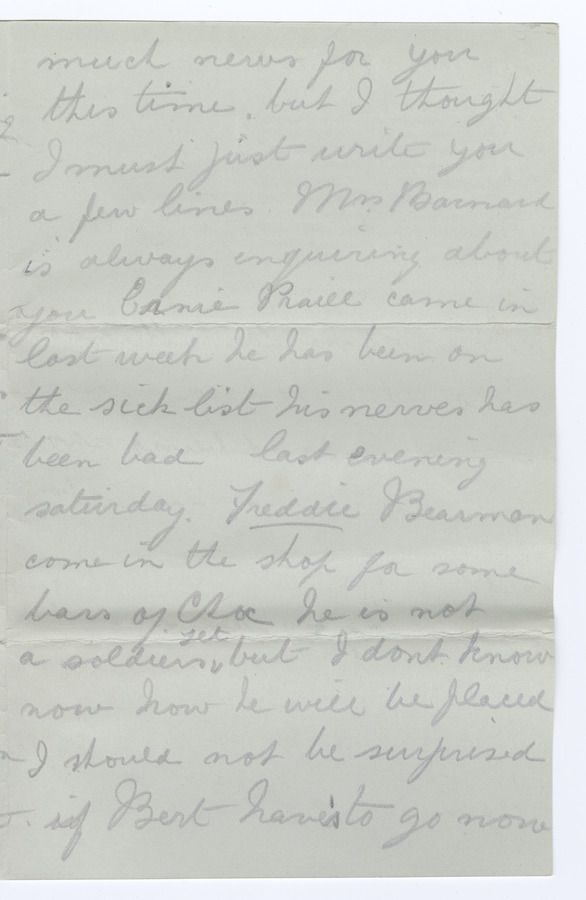 much news for you
this time, but I thought
I must just write you
a few lines. Mrs Barnard
is always enquiring about
you Ernie Praill came in
last week he has been on
the sick list his nerves has
been bad last evening
saturday. Freddie Bearman
come in the shop for some
bars of Choc he is not
a soldier yet, but I dont know
now how he will be placed
I should not be surprised
if Bert haves to go now